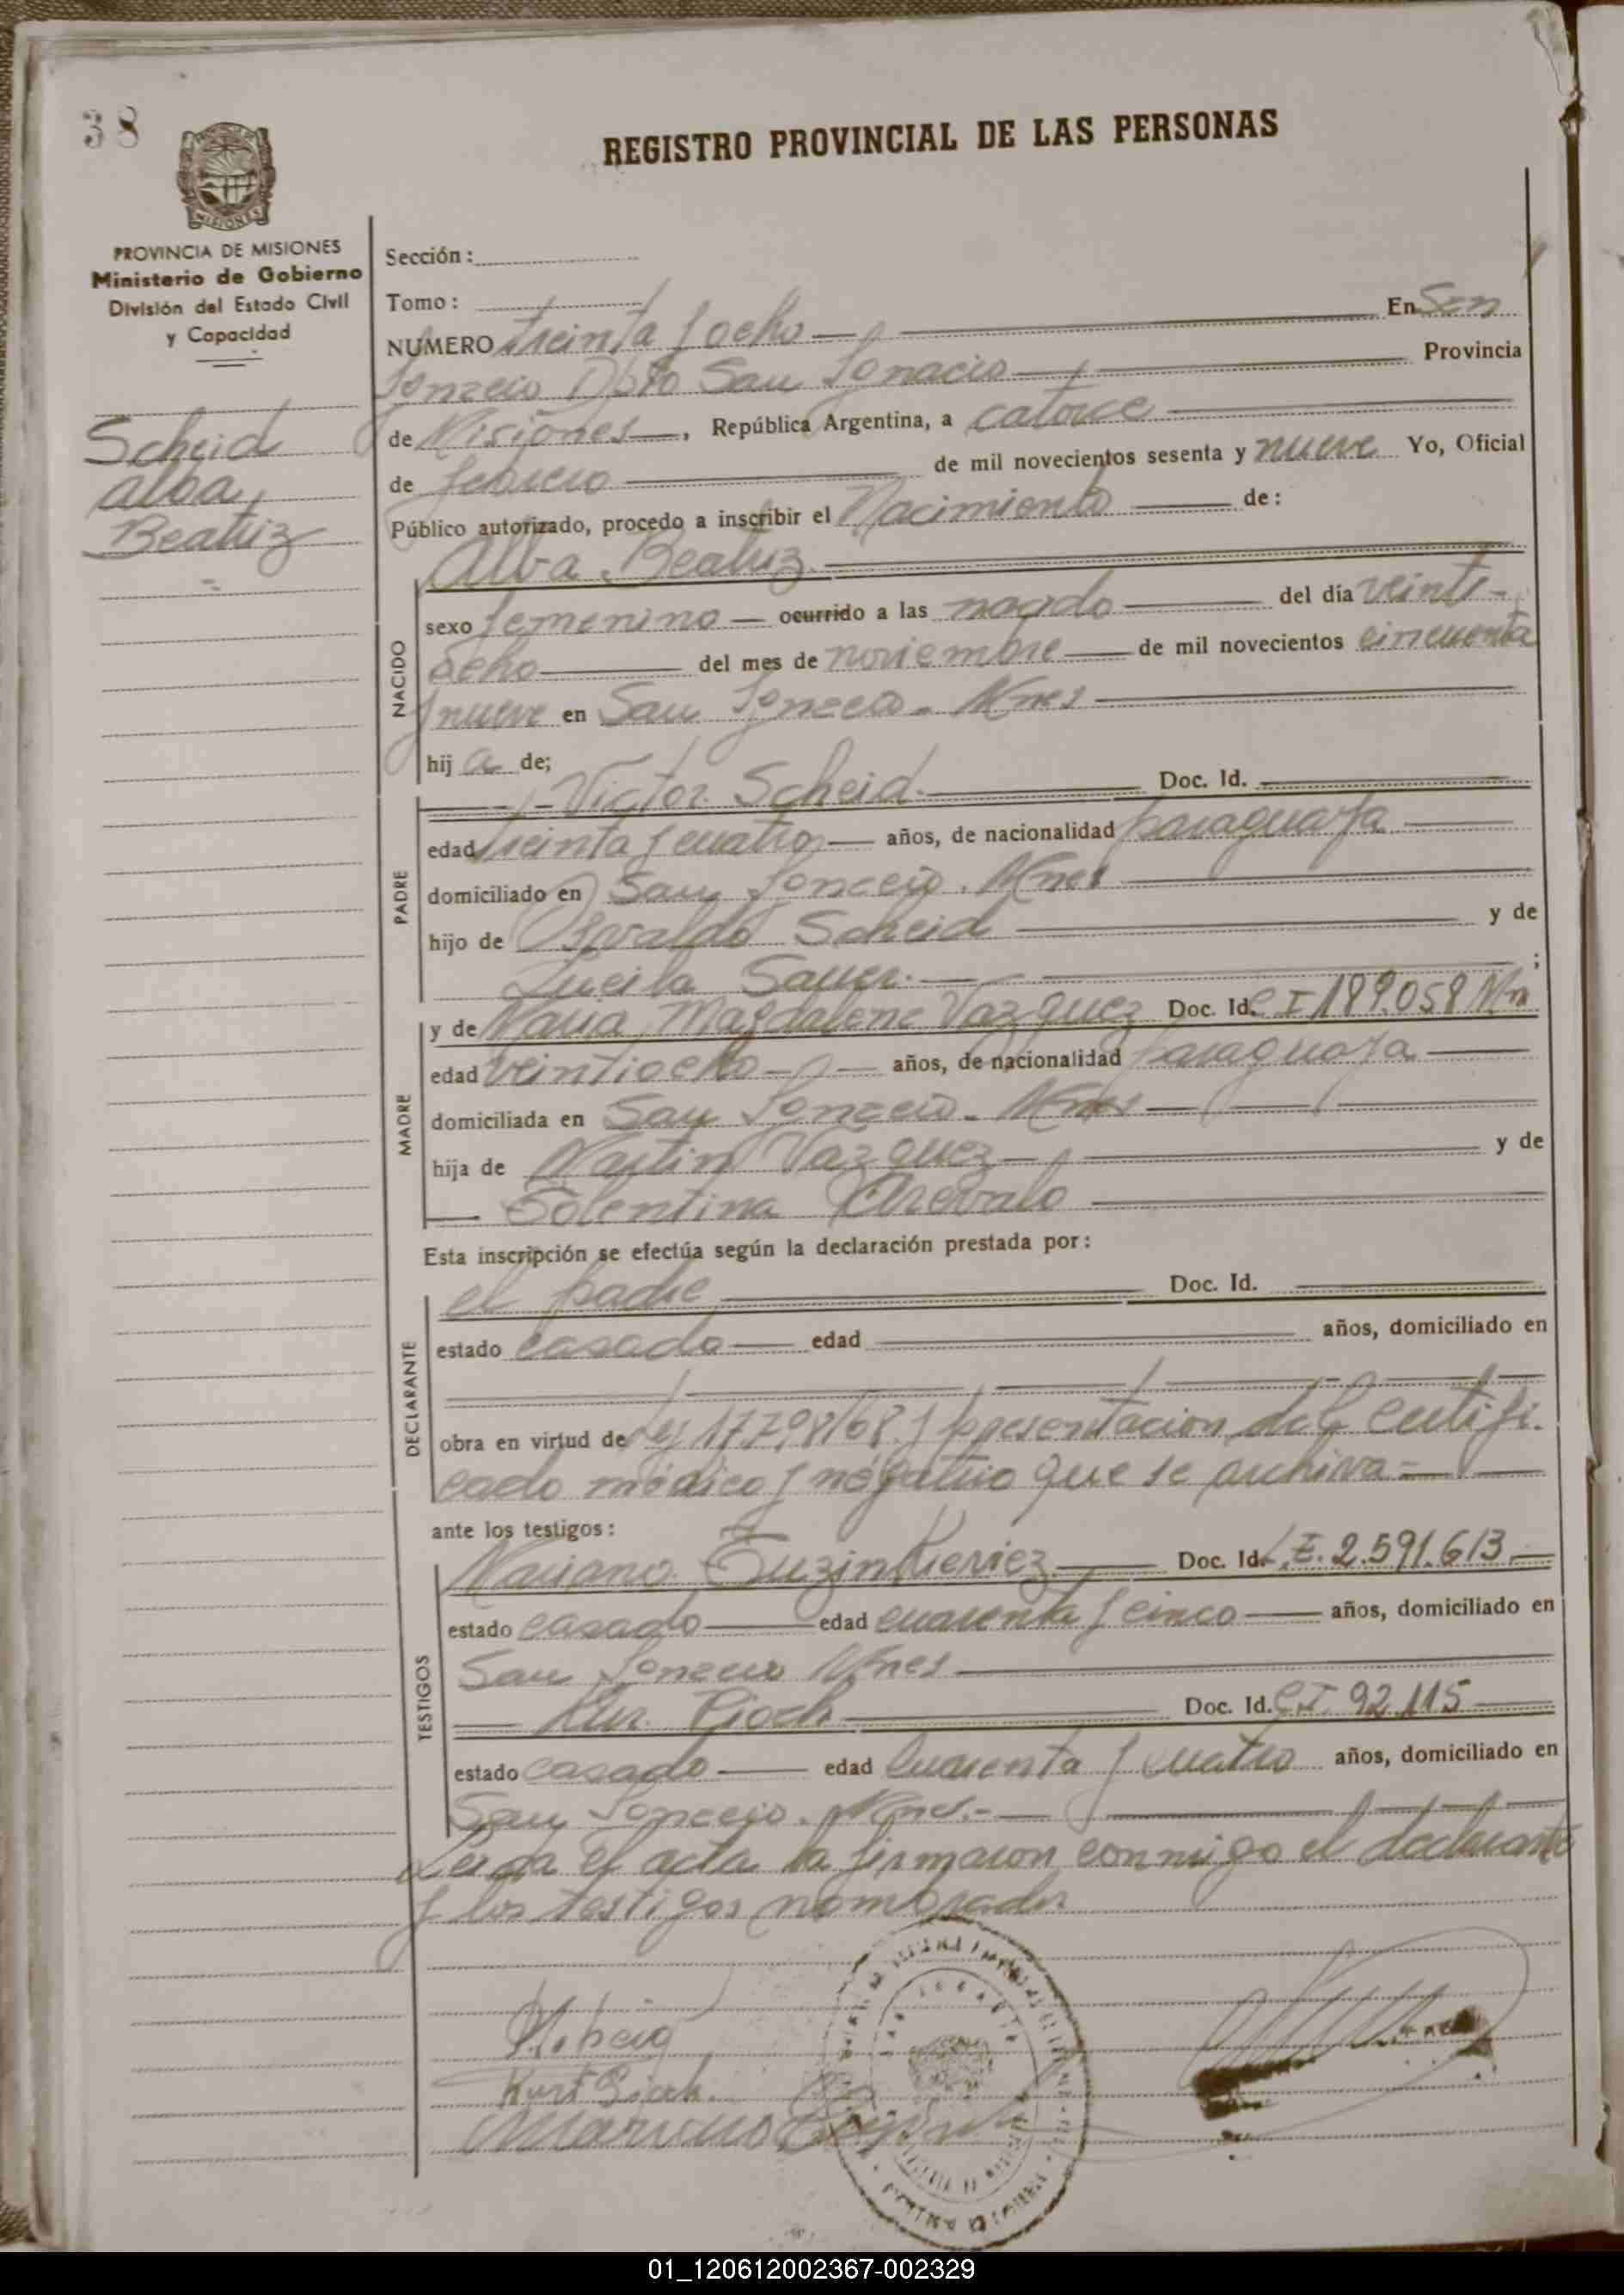 38
REGISTRO PROVINCIAL DE LAS PERSONAS
MISIONES
PROVINCIA DE MISIONES
Ministerio de Gobierno
División del Estado Civil
y Capacidad
Scheid
Alba
Beatriz
Sección:
Tomo:
NUMERO treinta y ocho En San
Ignacio Dpto San Ignacio Provincia
de Misiones, República Argentina, a catorce
de febrero de mil novecientos sesenta y nueve Yo, Oficial
Público autorizado, procedo a inscribir el Nacimiento de:
Alba Beatriz
NACIDO
sexo femenino ocurrido a las nacido del día veinti-
ocho del mes de noviembre de mil novecientos cincuenta
y nueve en San Ignacio. Mnes
hij a de;
PADRE
Victor Scheid. Doc. Id.
edad treinta y cuatro años, de nacionalidad paraguaya
domiciliado en San Ignacio. Mnes
hijo de Osvaldo Scheid y de
Lucila Sauer. ;
MADRE
y de Maria Magdalena Vazquez Doc. Id. C I 189.058 Mn
edad veintiocho años, de nacionalidad paraguaya
domiciliada en San Ignacio. Mnes
hija de Martin Vazquez y de
Tolentina Arevalo
Esta inscripción se efectúa según la declaración prestada por:
DECLARANTE
el padre Doc. Id.
estado casado edad años, domiciliado en
obra en virtud de Ley 17798/68 y presentacion del Certifi-
cado médico y négativo que se archiva-
ante los testigos:
TESTIGOS
Mariano Doc. Id. L.E. 2.591.613
estado casado edad cuarenta y cinco años, domiciliado en
San Ignacio Mnes
Doc. Id. C.I. 92.115
estado casado edad cuarenta y cuatro años, domiciliado en
San Ignacio. Mnes.-
Leida el acta la firmaron conmigo el declarante
y los testigos nombrados
Kurt
Mariano
01_120612002367-002329